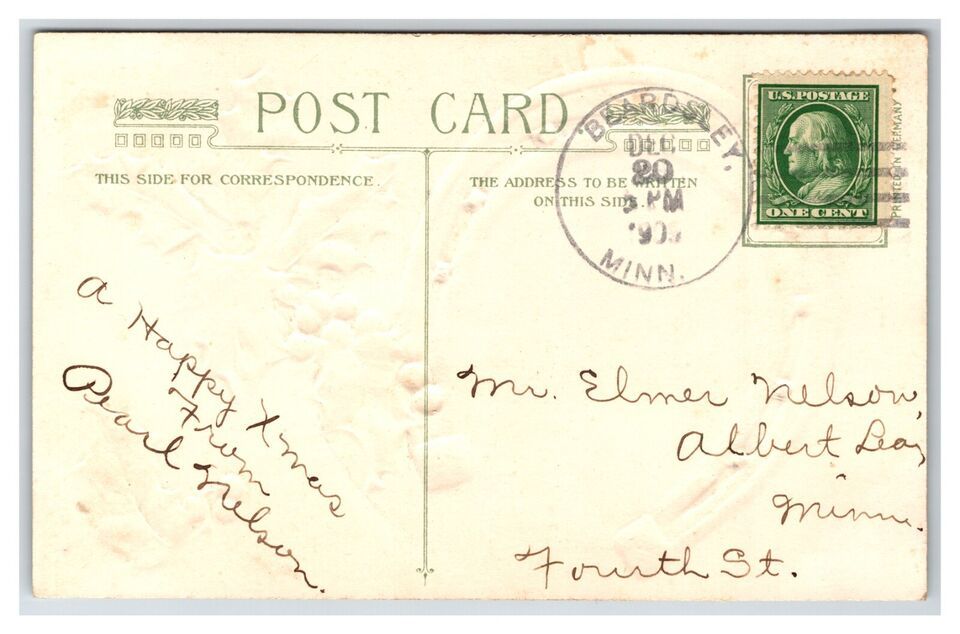 POST CARD
THIS SIDE FOR CORRESPONDENCE.
THE ADDRESS TO BE WRITTEN
ON THIS SIDE.
BEARDSLEY,
DEC
20
PM
MINN.
U.S. POSTAGE
ONE CENT
PRINTED IN GERMANY
A
Happy Xmas
From
Pearl Nelson.
Mr. Elmer Nelson,
Albert Lea,
Minn.
Fourth St.